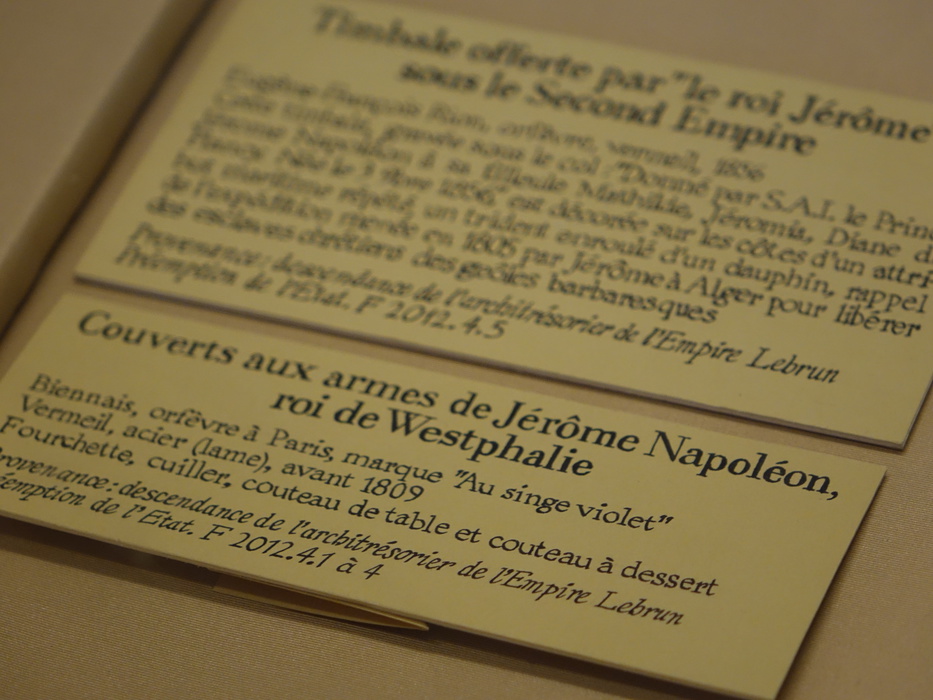 Timbale offerte par "le roi Jérôme
sous le Second Empire
François Bion, orfèvre, vermeil, 1856
Cette timbale, gravée sous le col "Donné par S.A.I. le Prin
Jérome Napoléon à sa filleule Mathilde, Jéromia, Diane d
Née le 3 1856", est décorée sur les côtes d'un attri-
but maritime répété, un trident enroulé d'un dauphin, rappel
de l'expédition menée en 1805 par Jérôme à Alger pour libérer
des esclaves chrétiens des geôles barbaresques
Provenance : descendance de l'architrésorier de l'Empire Lebrun
Préemption de l'État. F 2012.4.5
Couverts aux armes de Jérôme Napoléon,
roi de Westphalie
Biennais, orfèvre à Paris, marque "Au singe violet"
Vermeil, acier (lame), avant 1809
Fourchette, cuiller, couteau de table et couteau à dessert
Provenance : descendance de l'architrésorier de l'Empire Lebrun
éemption de l'Etat. F 2012.4.1 à 4